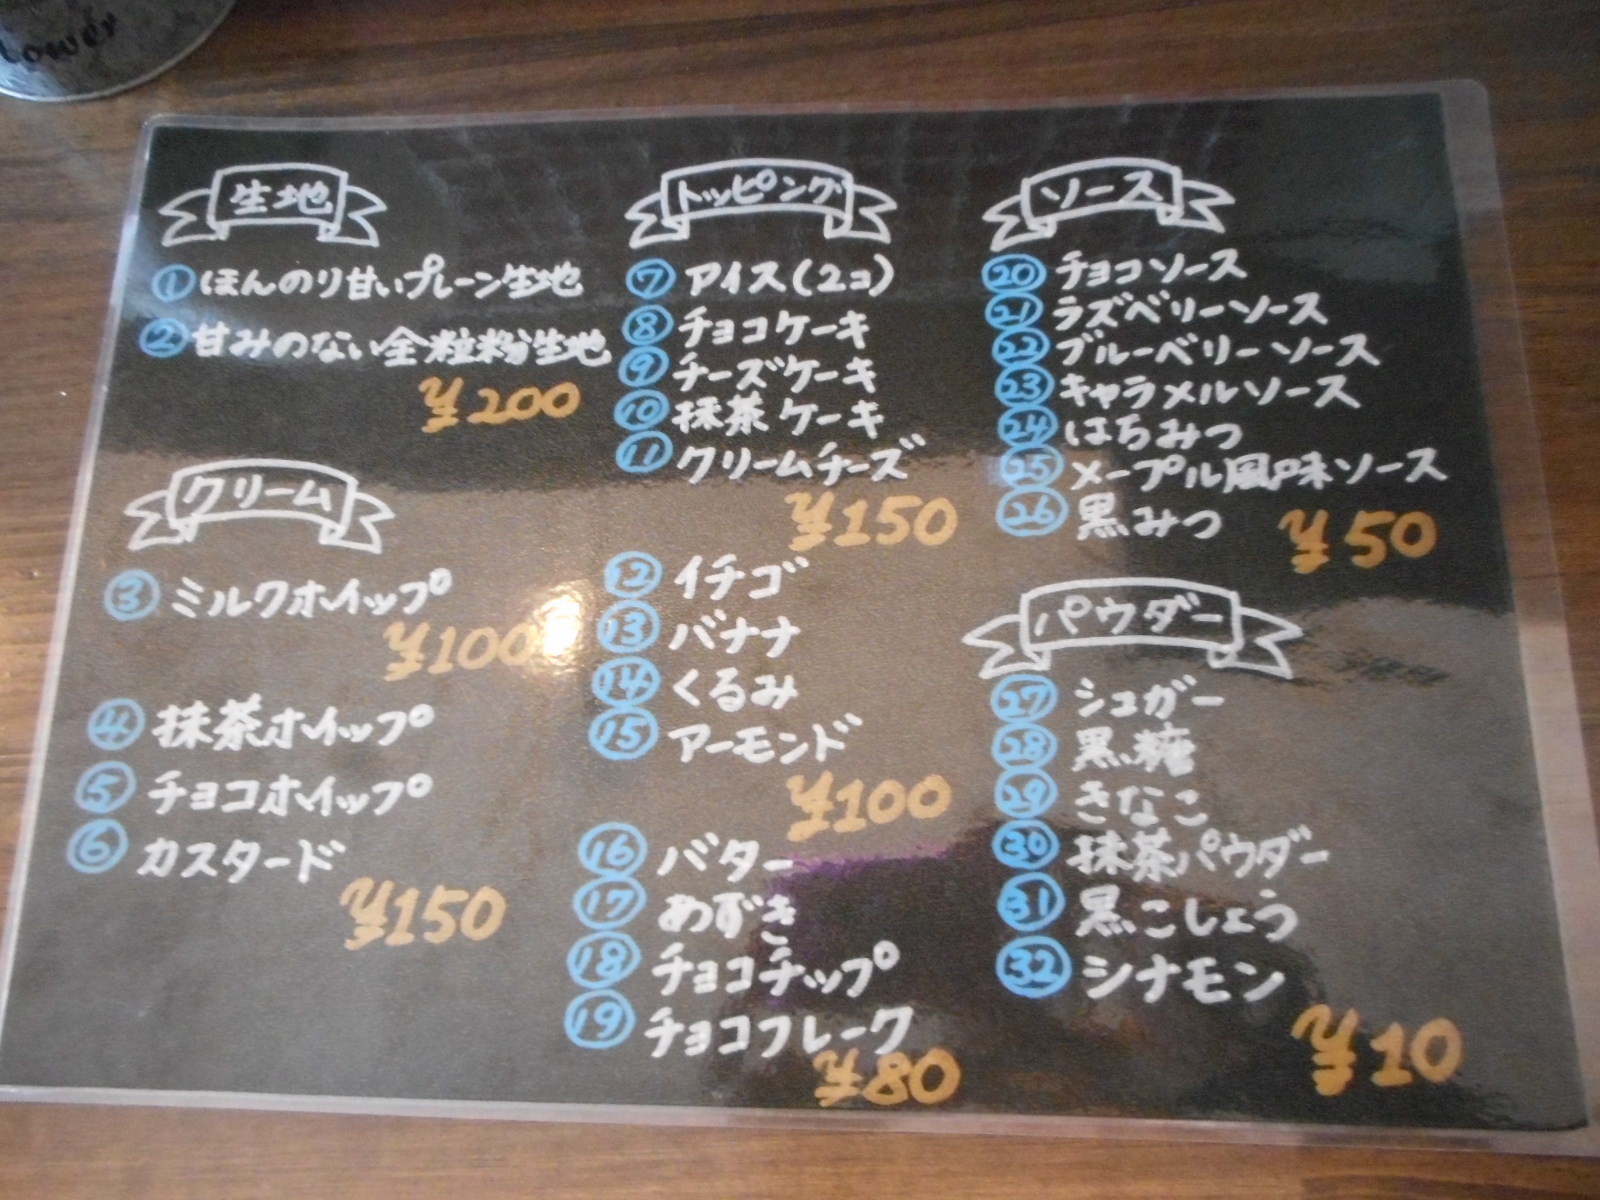 lower
生地
① ほんのり甘いプレーン生地
② 甘みのない全粒粉生地
¥200
クリーム
③ ミルクホイップ
¥100
④ 抹茶ホイップ
⑤ チョコホイップ
⑥ カスタード
¥150
トッピング
⑦ アイス(2コ)
⑧ チョコケーキ
⑨ チーズケーキ
⑩ 抹茶ケーキ
⑪ クリームチーズ
¥150
⑫ イチゴ
⑬ バナナ
⑭ くるみ
⑮ アーモンド
¥100
⑯ バター
⑰ あずき
⑱ チョコチップ
⑲ チョコフレーク
¥80
ソース
⑳ チョコソース
㉑ ラズベリーソース
㉒ ブルーベリーソース
㉓ キャラメルソース
㉔ はちみつ
㉕ メープル風味ソース
㉖ 黒みつ
¥50
パウダー
㉗ シュガー
㉘ 黒糖
㉙ きなこ
㉚ 抹茶パウダー
㉛ 黒こしょう
㉜ シナモン
¥10